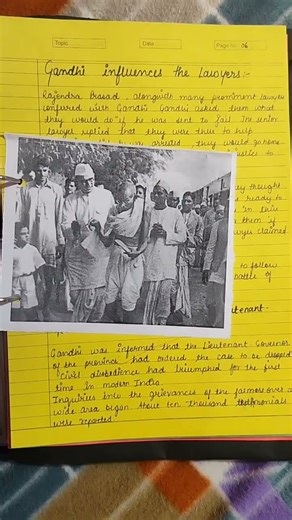 Topic
Date
Page No. 06
Gandhi influences the lawyers:-
Rajendra Prasad, alongwith many prominent lawyers
conferred with Gandhi. Gandhi asked them what
they would do if he was sent to jail. The senior
lawyer replied that they were there to help
arrested, they would go home
thought
ready to
in this
them if
claimed
to follow
battle of
Gandhi was informed that the Lieutenant Governor
of the province had ordered the case to be dropped
"Civil disobedience had triumphed for the first
time in modern India.
Inquiries into the grievances of the farmers over a
wide area began. About ten thousand
were reported.